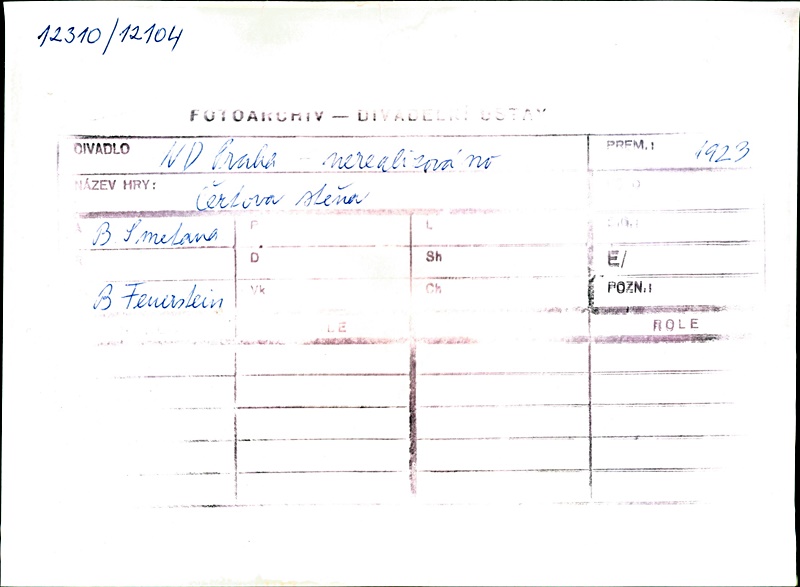 12310/12104
FOTOARCHIV — DIVADELNÍ ÚSTAV
DIVADLO ND Praha – nerealizováno PREM.: 1923
NÁZEV HRY: Čertova stěna
B Smetana P L
D Sh E/
B Feuerstein Vk Ch POZN.:
ROLE